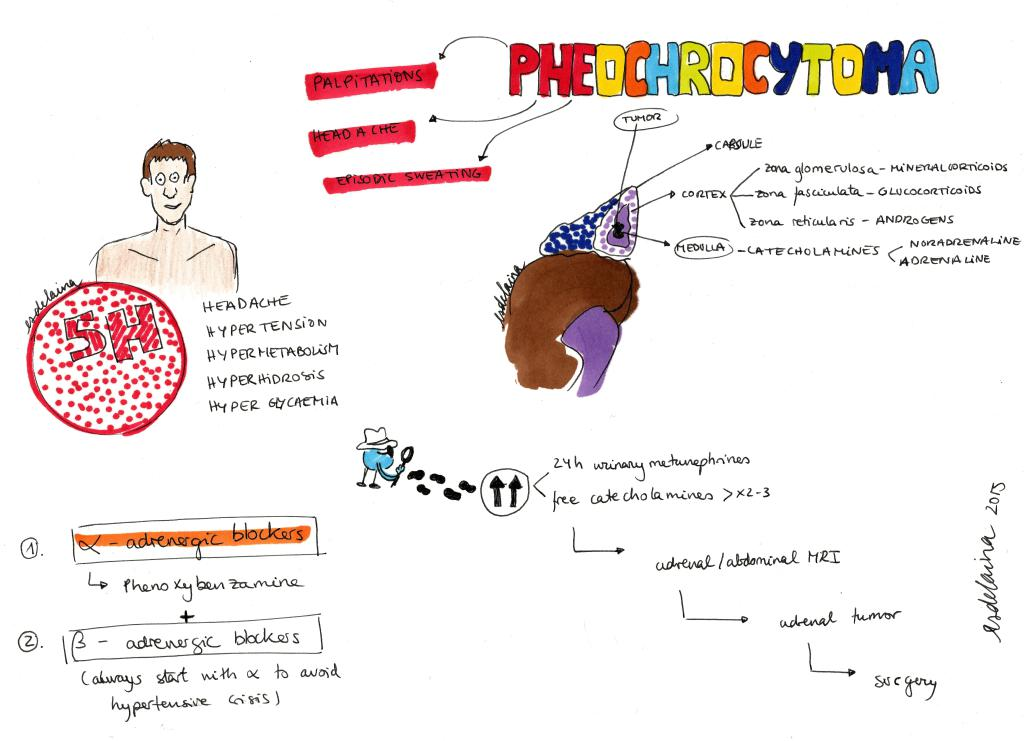 PHEOCHROCYTOMA
PALPITATIONS
HEADACHE
EPISODIC SWEATING
TUMOR
CAPSULE
CORTEX
zona glomerulosa – MINERALCORTICOIDS
zona fasciculata – GLUCOCORTICOIDS
zona reticularis – ANDROGENS
MEDULLA – CATECHOLAMINES
NORADRENALINE
ADRENALINE
esdelaina
esdelaina
5H
HEADACHE
HYPERTENSION
HYPERMETABOLISM
HYPERHIDROSIS
HYPERGLYCAEMIA
24h urinary metanephrines
free catecholamines >x2-3
adrenal/abdominal MRI
adrenal tumor
surgery
1. α – adrenergic blockers
Phenoxybenzamine
+
2. β – adrenergic blockers
(always start with α to avoid
hypertensive crisis)
esdelaina 2015